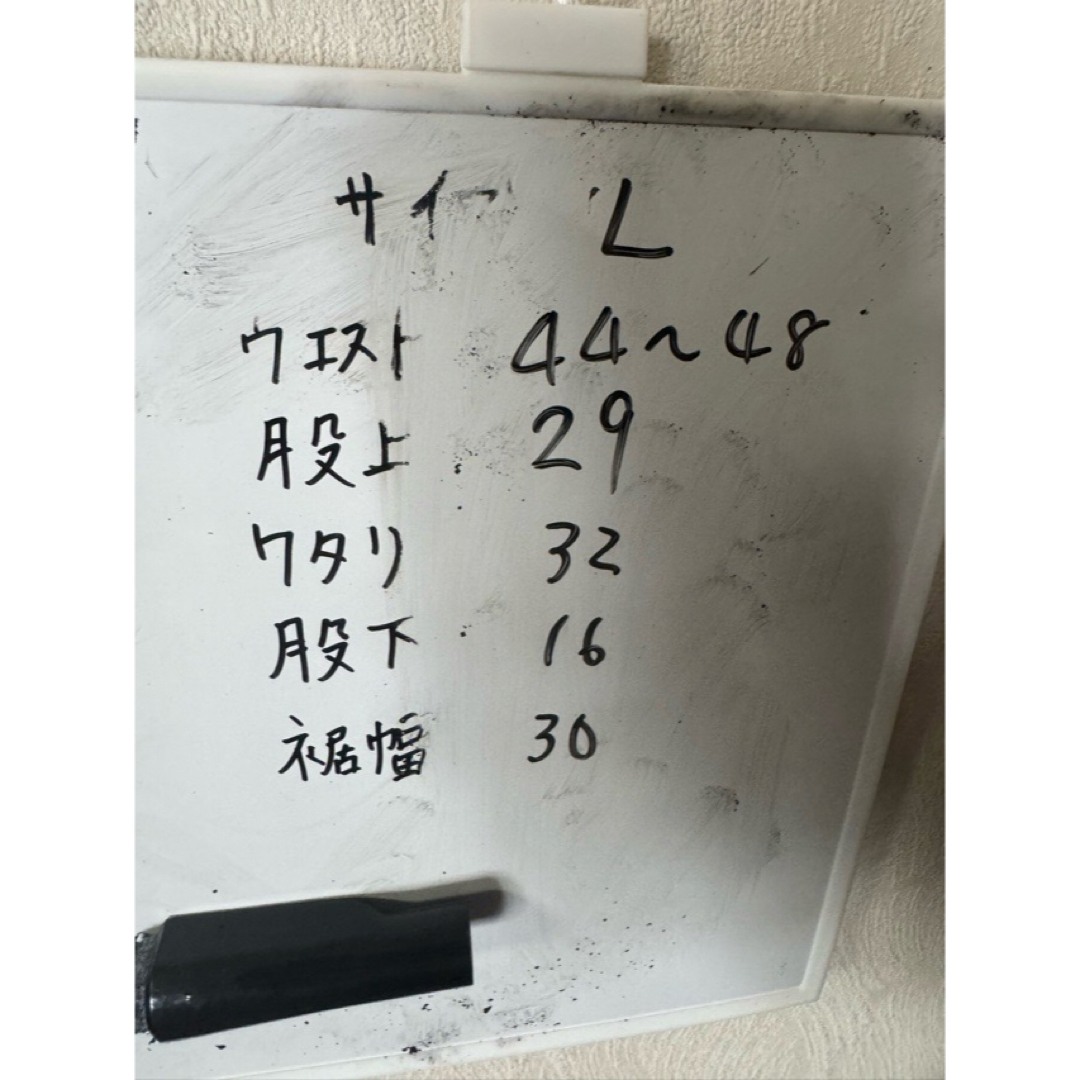 サイ L
ウエスト 44~48
股上 29
ワタリ 32
股下 16
裾幅 30